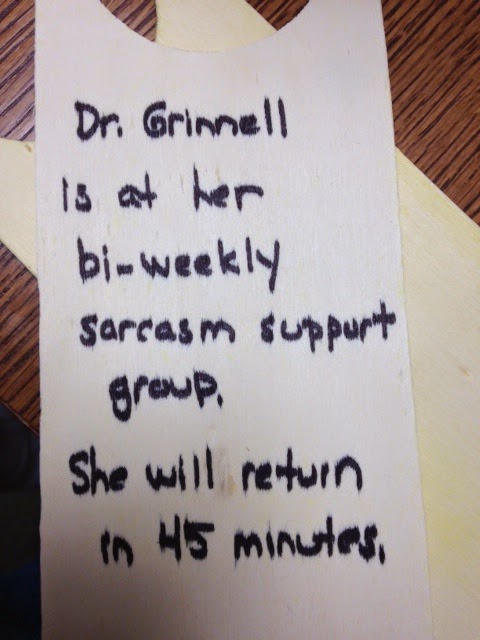 Dr. Grinnell
is at her
bi-weekly
sarcasm support
group.
She will return
in 45 minutes.